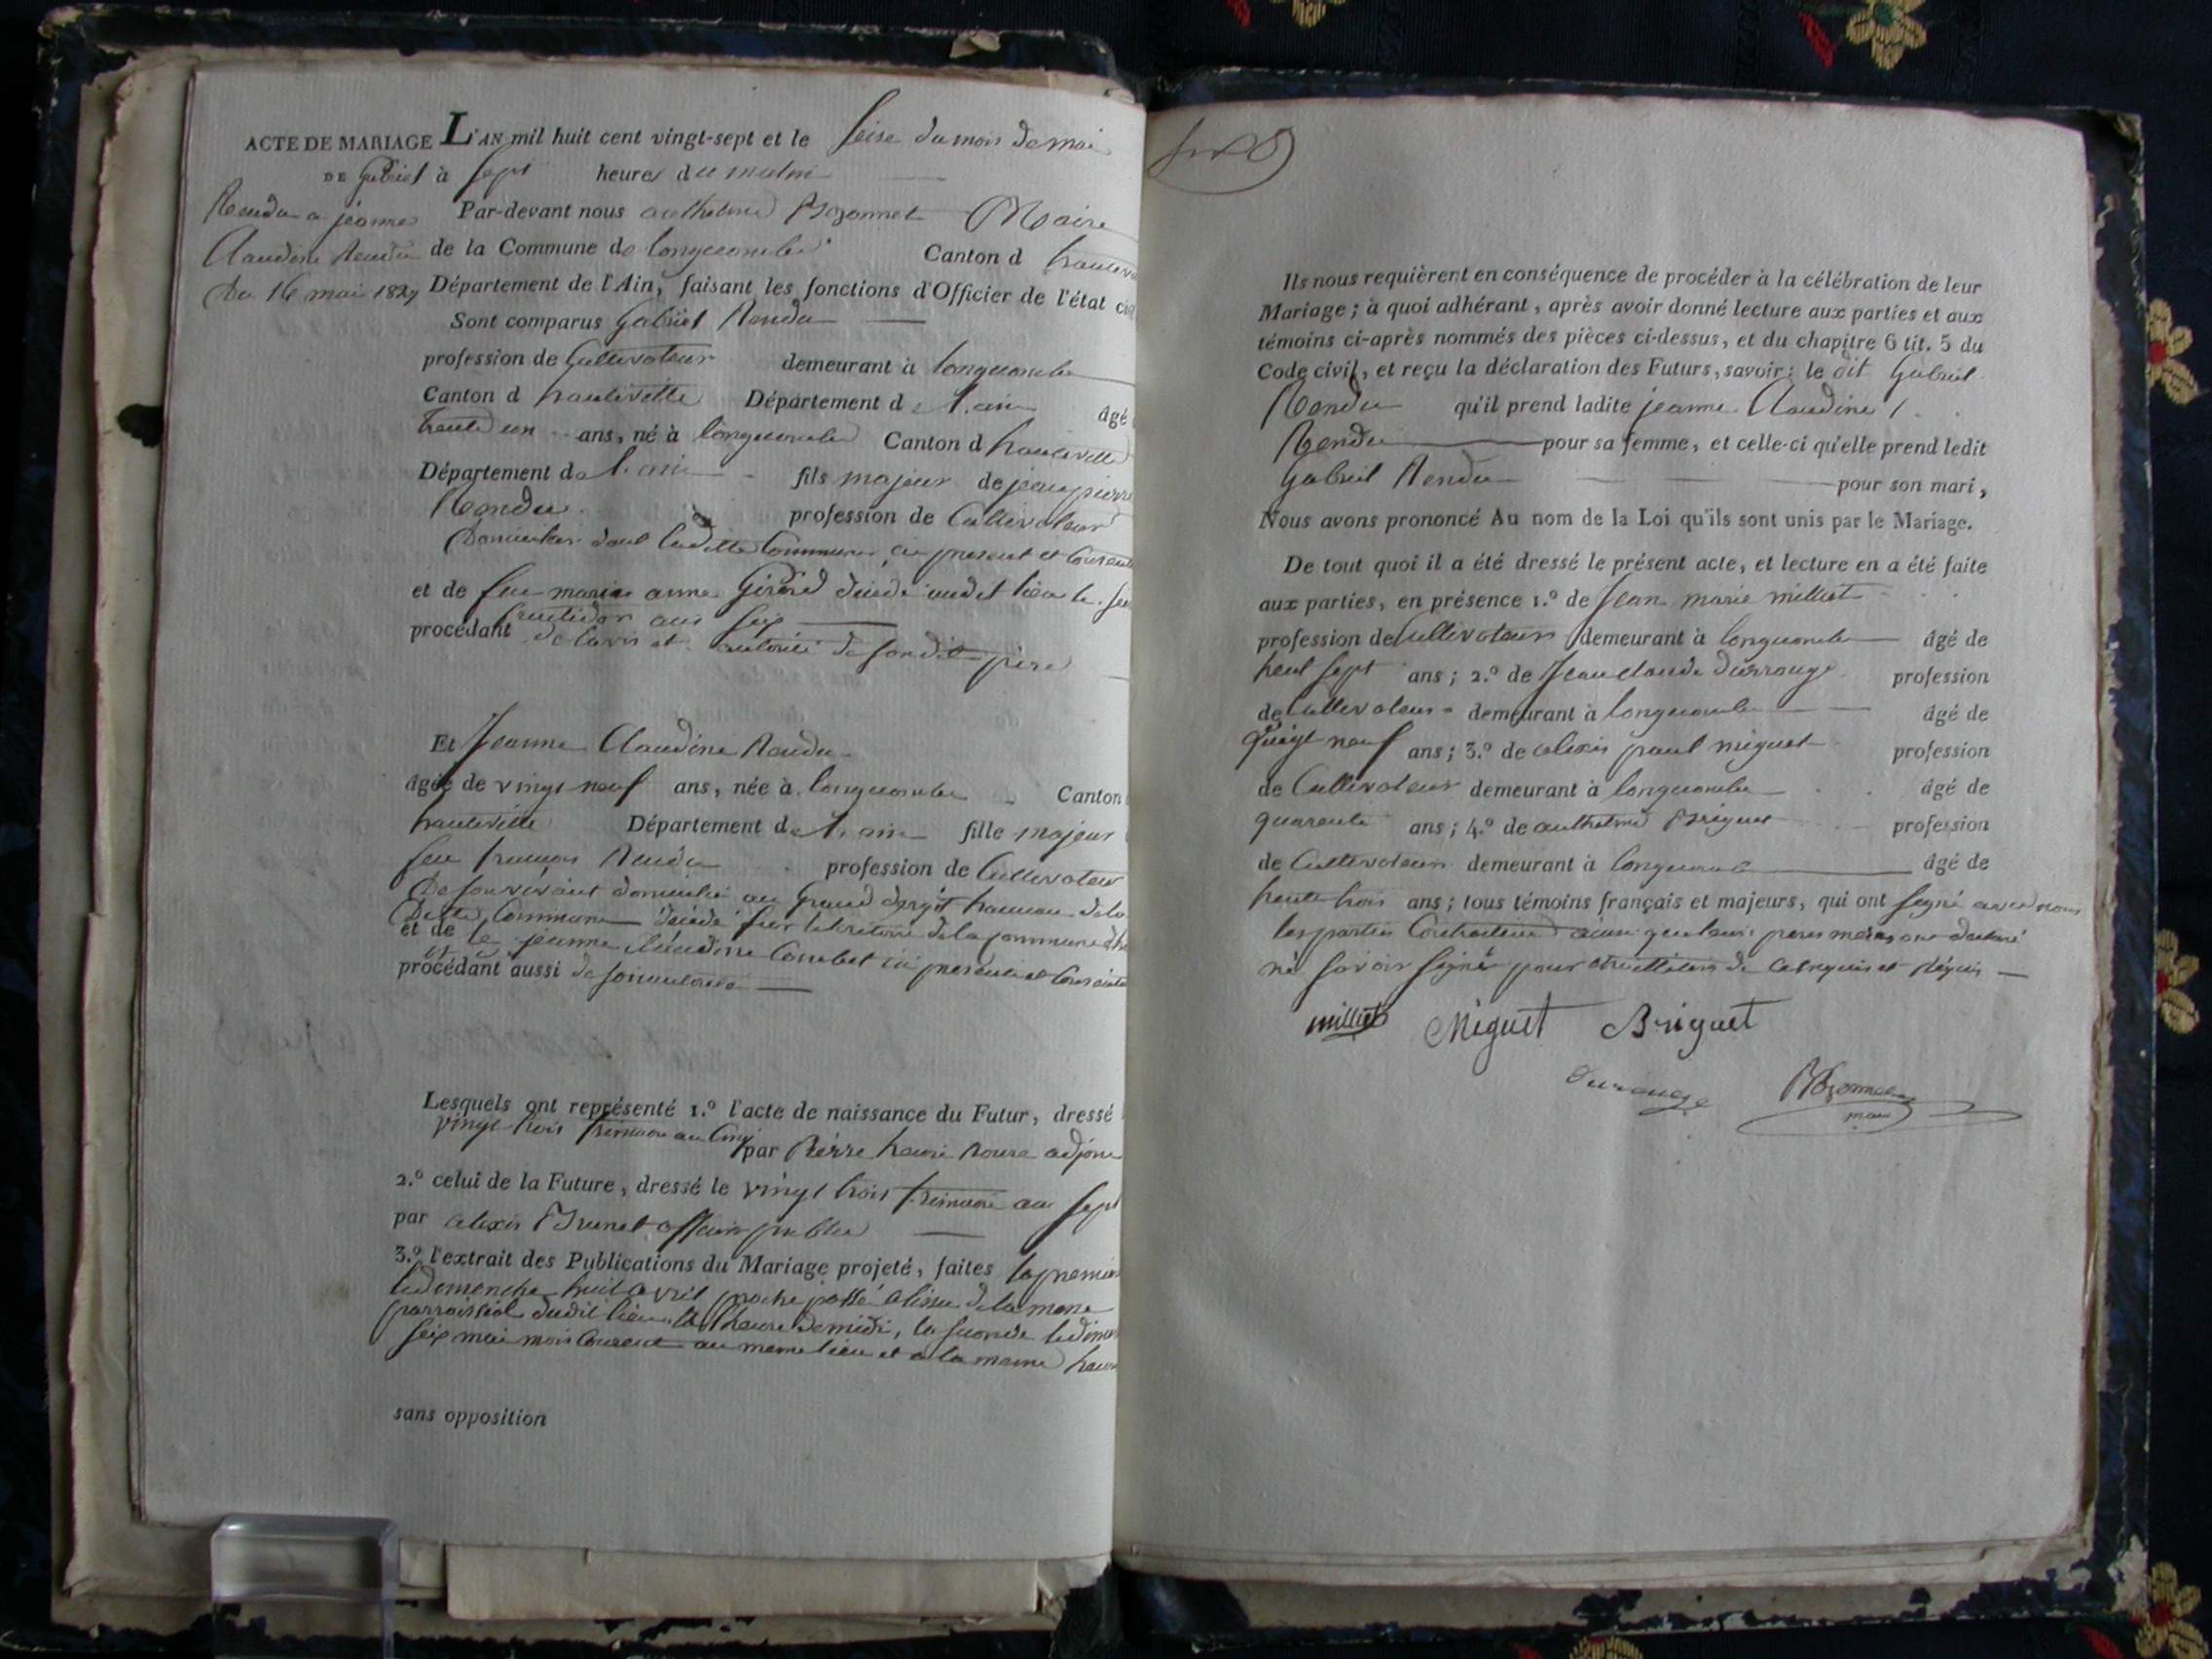 ACTE DE MARIAGE L'AN mil huit cent vingt-sept et le seise du mois de mai
DE Gabriel à sept heures du matin
Rendu a jeanne Par-devant nous anthelme Maire
Claudine Rendu de la Commune de longecombe Canton d hauteville
Du 16 mai 1827 Département de l'Ain, faisant les fonctions d'Officier de l'état civil
Sont comparus Gabriel Rendu
profession de Cultivateur demeurant à longecombe
Canton d hauteville Département d l'ain âgé
trente un ans, né à longecombe Canton d hauteville
Département de l'ain fils majeur de jean pierre
Rendu profession de Cultivateur
dans ladite Commune, ci present et
et de feu marie anne Girard audit lieu le
fructidor an six
procédant de l'avis et autorité de son dit père
Et Jeanne Claudine Rendu
âgée de vingt neuf ans, née à longecombe Canton
hauteville Département de l'ain fille majeur
feu françois Rendu profession de Cultivateur
De son vivant domicilié au Grand hameau de la
Dette Commune décédé sur de la commune
et de jeanne Claudine Combet ici presente et
procédant aussi de son autorité
Lesquels ont représenté 1.º l'acte de naissance du Futur, dressé
vingt trois frimaire an cinq par Pierre henri adjoint
2.º celui de la Future, dressé le vingt trois frimaire an sept
par alexis Brunet officier public
3.º l'extrait des Publications du Mariage projeté, faites la premier
le dimenche huit avril proche passé a lissue de la messe
parroissial dudit lieu a lheure de midi, la seconde le dimen
six mai mois courant au meme lieu et a la meme heure
sans opposition
Ils nous requièrent en conséquence de procéder à la célébration de leur
Mariage; à quoi adhérant, après avoir donné lecture aux parties et aux
témoins ci-après nommés des pièces ci-dessus, et du chapitre 6 tit. 5 du
Code civil, et reçu la déclaration des Futurs, savoir: le dit Gabriel
Rendu qu'il prend ladite jeanne Claudine
Rendu pour sa femme, et celle-ci qu'elle prend ledit
Gabriel Rendu pour son mari,
Nous avons prononcé Au nom de la Loi qu'ils sont unis par le Mariage.
De tout quoi il a été dressé le présent acte, et lecture en a été faite
aux parties, en présence 1.º de Jean marie milliet
profession de Cultivateur demeurant à longecombe âgé de
trent sept ans; 2.º de Jean claude durrouge profession
de Cultivateur demeurant à longecombe âgé de
vingt neuf ans; 3.º de alexis paul miguet profession
de Cultivateur demeurant à longecombe âgé de
quarente ans; 4.º de anthelme Briguet profession
de Cultivateur demeurant à longecombe âgé de
trente trois ans; tous témoins français et majeurs, qui ont signé avec nous
les parties ainsi que leurs peres meres ont declaré
ne savoir signé pour de ce enquis et requis
milliet Miguet Briguet
durouge
maire